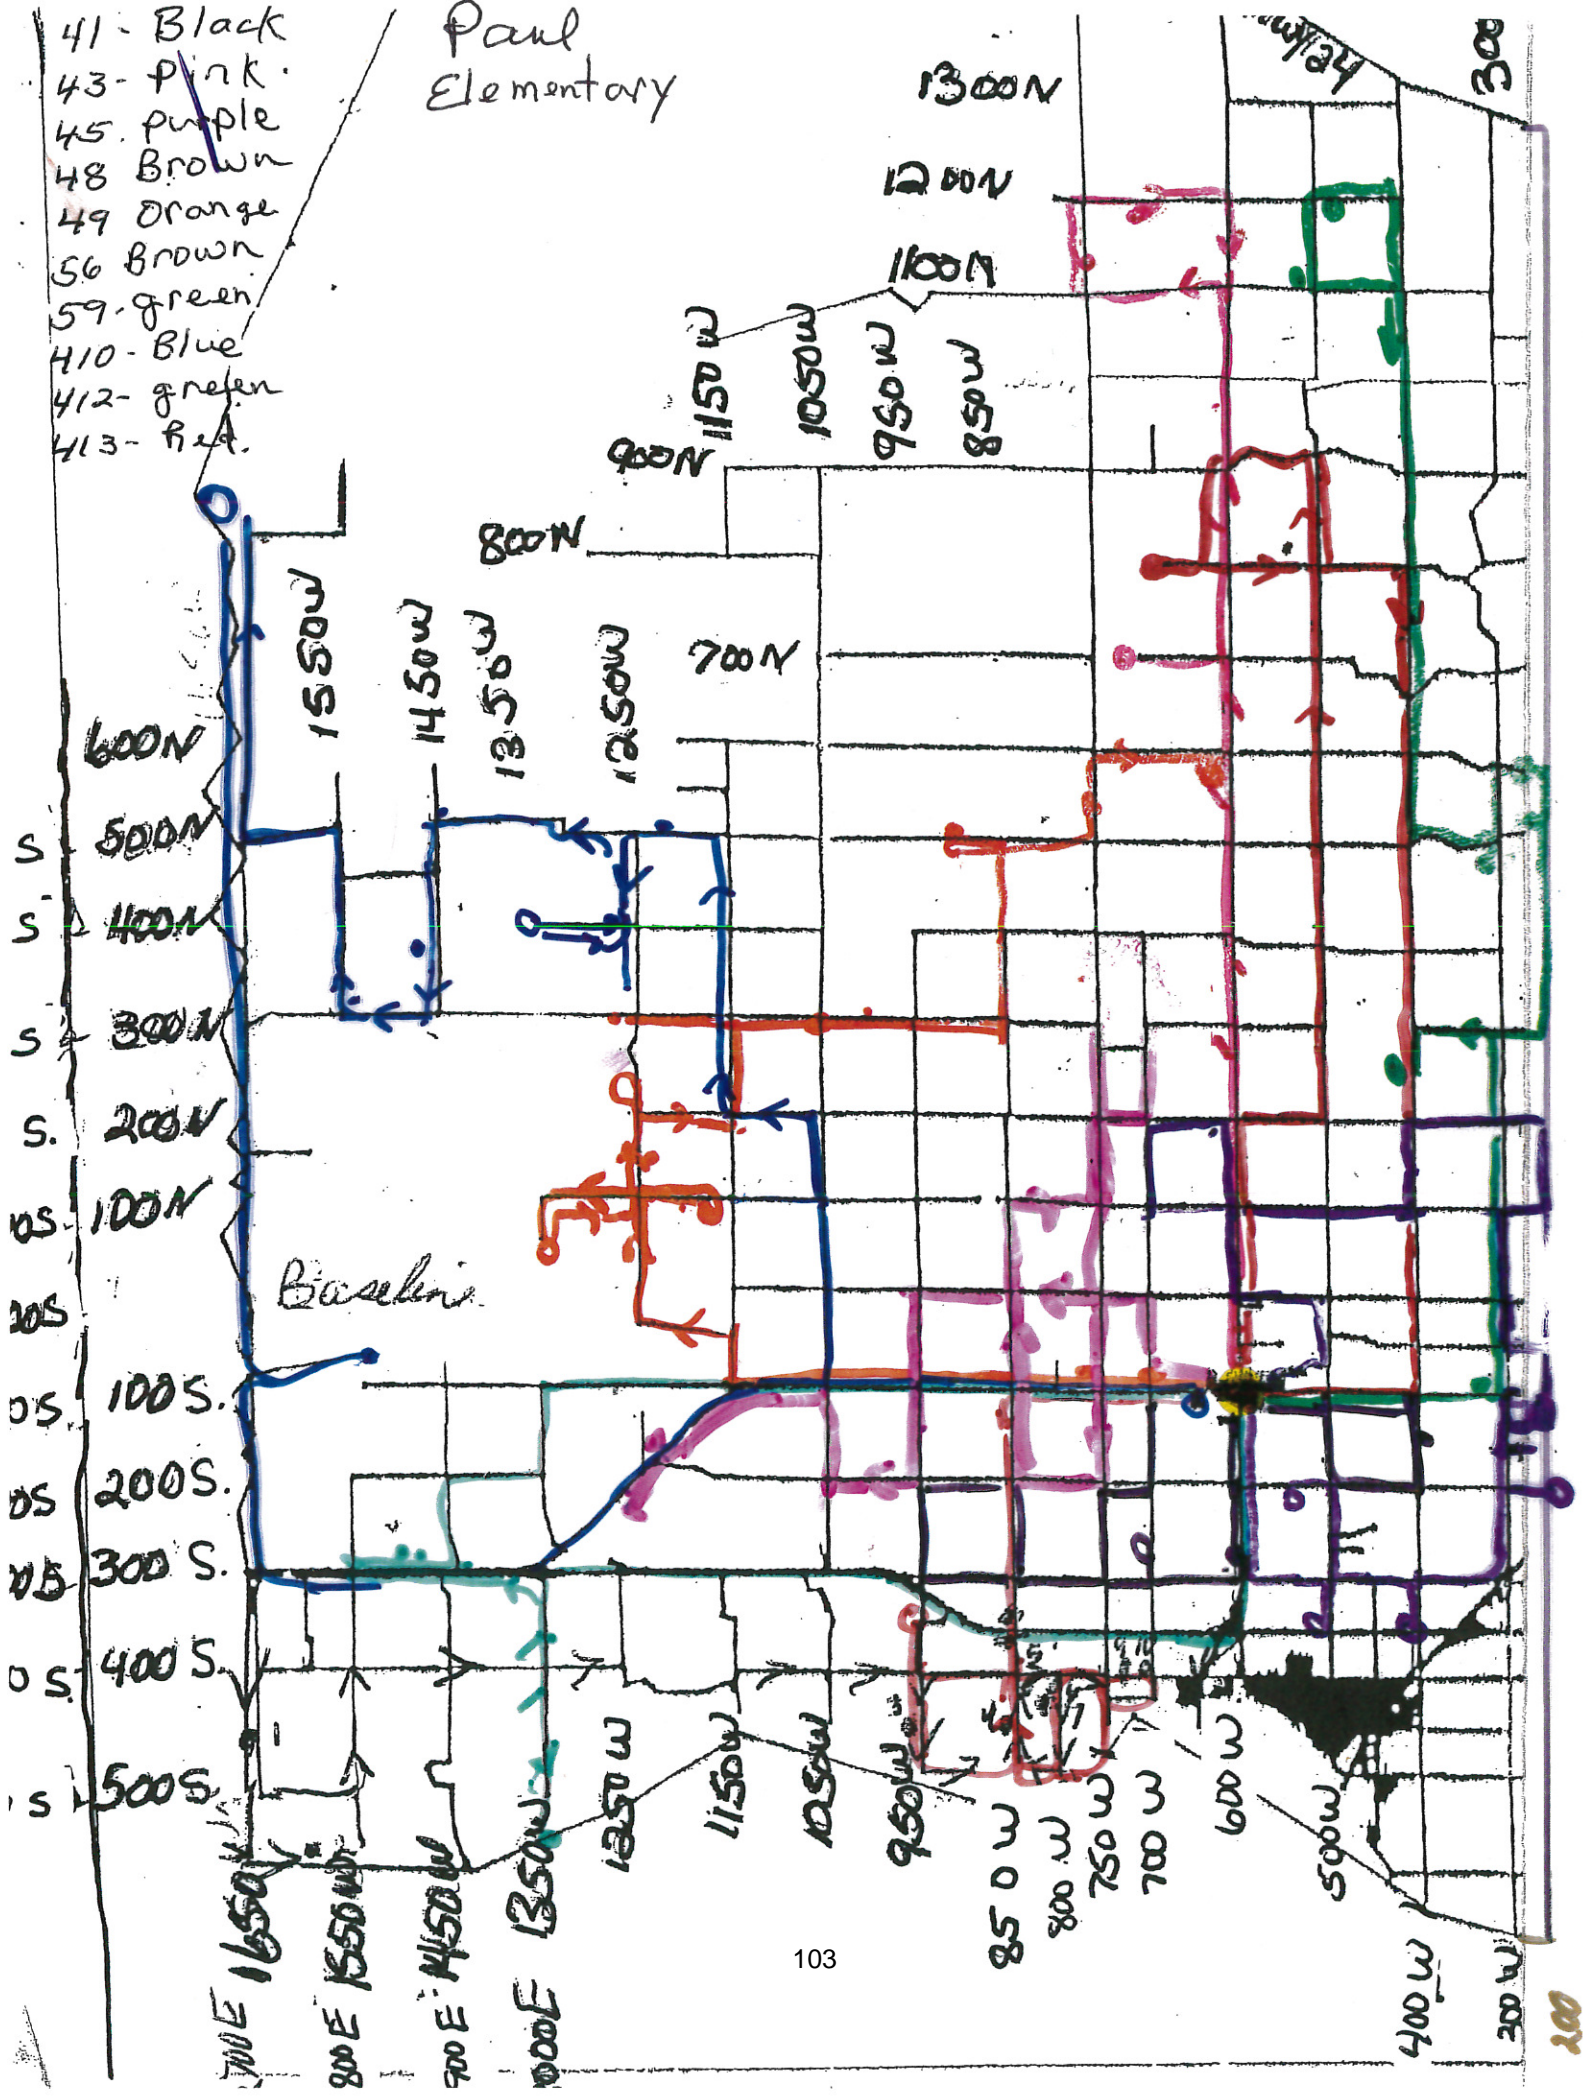 41- Black
43- Pink.
45. purple
48 Brown
49 Orange
56 Brown
59. green
410- Blue
412- green
413- Red.
Paul
Elementary
1300N
1200N
1100N
300
1150W
1050W
950W
850W
900N
800N
1550W
1450W
1350W
1250W
700N
600N
S 500N
S 400N
S 300N
S. 200N
0S 100N
Baseline
00S
0S. 100S.
0S 200S.
300 S.
0 S. 400 S.
S 500S
1650
1550W
1450W
1350W
1250W
1150W
1050W
950W
850W
800W
750W
700W
600W
500W
400W
300W
200
700E
800E
900E
000E
103